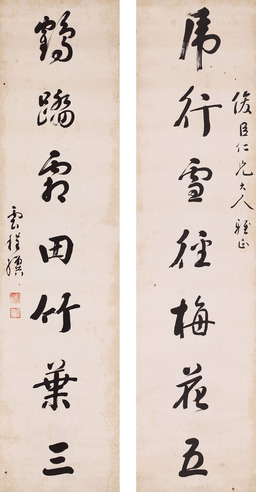 虎行雪徑梅花五
俊臣仁兄大人雅正
鶴蹈霜田竹葉三
雲